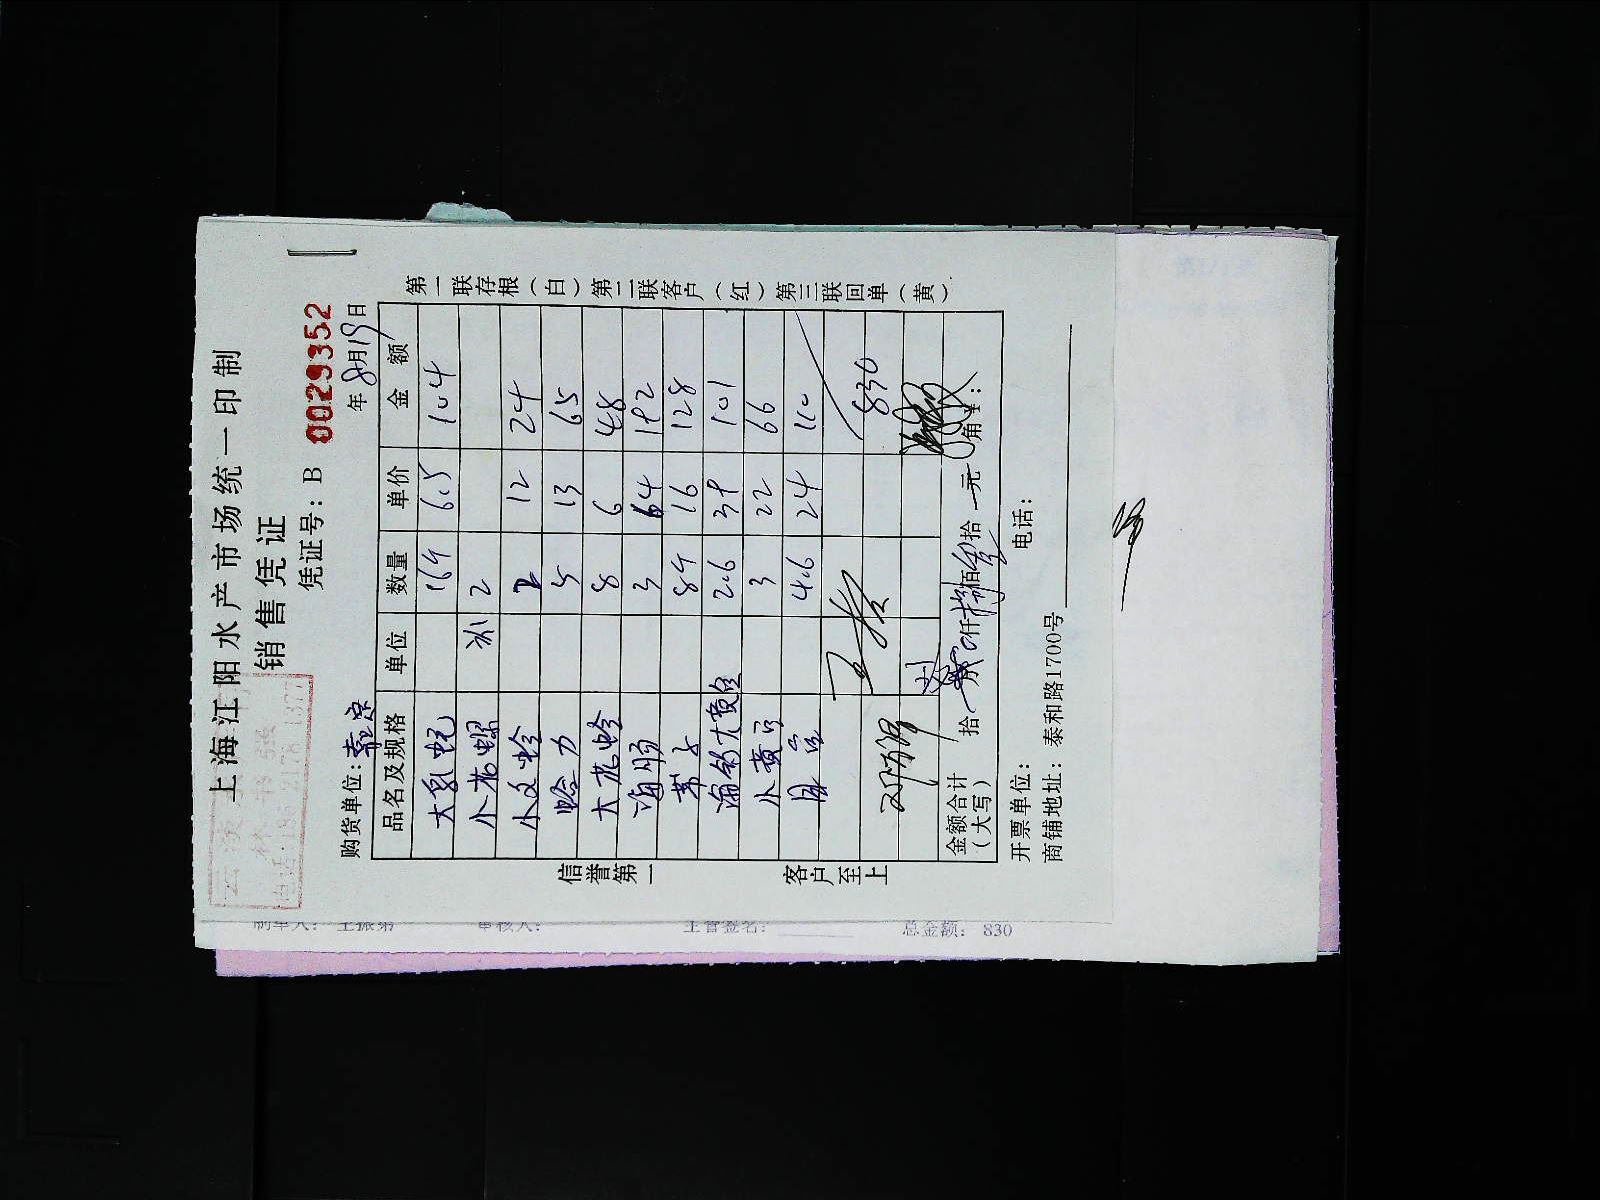 上海江阳水产市场统一印制
销售凭证
凭证号：B 0029352
购货单位： 年 8月19日
品名及规格 单位 数量 单价 金额
大乳蛏 16斤 6.5 104
小花螺 2
小文蛤 2 12 24
蛤力 5 13 65
大花蛤 8 6 48
海肠 3 64 192
8斤 16 128
大黄鱼 2.6 39 101
小黄鱼 3 22 66
4.6 24 110
830
金额合计（大写） 拾 仟 佰 拾 元 角 ￥：
开票单位： 电话：
商铺地址：泰和路1700号
第一联存根（白）第二联客户（红）第三联回单（黄）
信誉第一 客户至上
制单人： 王振弟 审核人： 主管签名： 总金额： 830